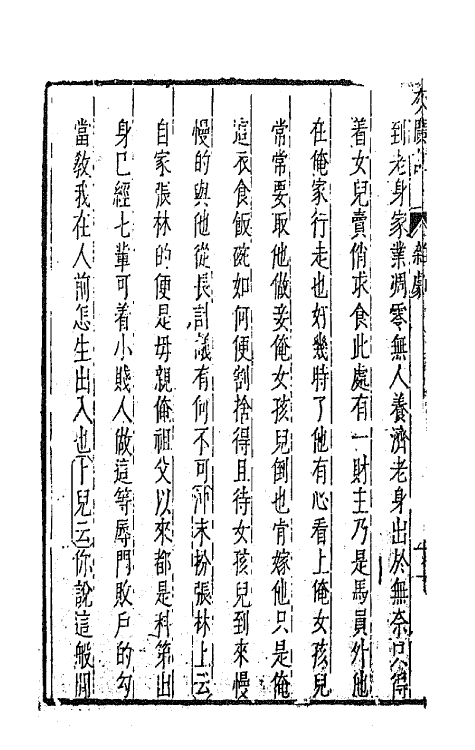 灰闌記 雜劇
到老身家業凋零無人養濟老身出於無奈只得
着女兒賣俏求食此處有一財主乃是馬員外他
在俺家行走也好幾時了他有心看上俺女孩兒
常常要取他做妾俺女孩兒倒也肯嫁他只是俺
這衣食飯碗如何便割捨得且待女孩兒到來慢
慢的與他從長計議有何不可冲末扮張林上云
自家張林的便是母親俺祖父以來都是科第出
身已經七輩可着小賤人做這等辱門敗戶的勾
當敎我在人前怎生出入也卜兒云你說這般閒